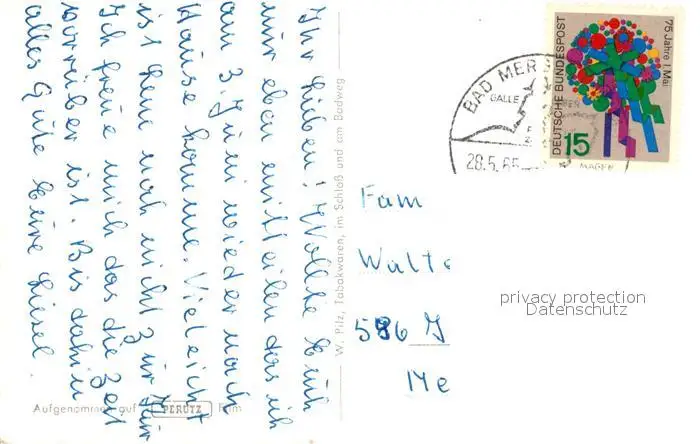 Ihr Lieben! Wollte Euch
nur eben mitteilen das ich
am 3. Juni wieder nach
Hause komme. Vieleicht
ist Lene noch nicht zur Kur
Ich freue mich das die Zeit
vorrüber ist. Bis dahin
alles Gute Eure Liesel
W. Pilz, Tabakwaren, im Schloß und am Badweg
Aufgenommen auf PERUTZ Film
BAD MER
GALLE
28.5.65
MAGEN
DEUTSCHE BUNDESPOST
75 Jahre 1. Mai
15
Fam
Walte
586 J
Me
privacy protection
Datenschutz